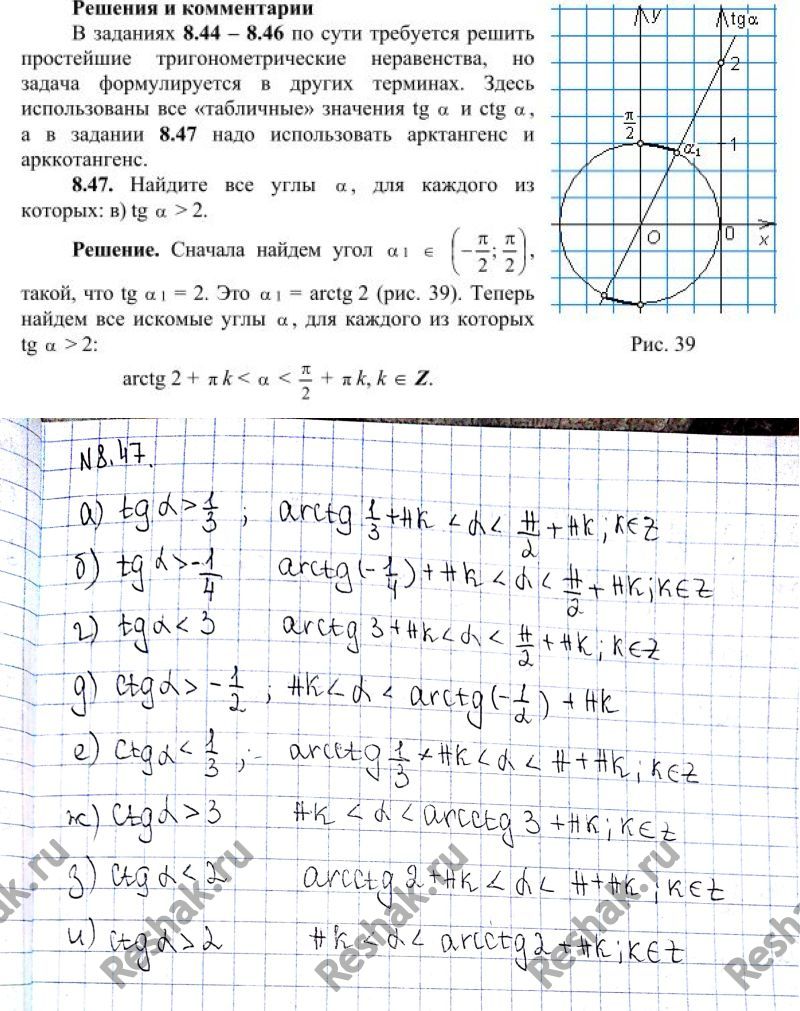 Решения и комментарии
В заданиях 8.44 – 8.46 по сути требуется решить
простейшие тригонометрические неравенства, но
задача формулируется в других терминах. Здесь
использованы все «табличные» значения tg α и ctg α,
а в задании 8.47 надо использовать арктангенс и
арккотангенс.
8.47. Найдите все углы α, для каждого из
которых: в) tg α > 2.
Решение. Сначала найдем угол α₁ ∈ (−π/2; π/2),
такой, что tg α₁ = 2. Это α₁ = arctg 2 (рис. 39). Теперь
найдем все искомые углы α, для каждого из которых
tg α > 2:
arctg 2 + πk < α < π/2 + πk, k ∈ Z.
y
tg α
2
π/2
α₁
1
O
0
x
Рис. 39
N8.47.
а) tg α > 1/3 ; arctg 1/3 + πk < α < π/2 + πk; k∈Z
б) tg α > -1/4 arctg (-1/4) + πk < α < π/2 + πk; k∈Z
г) tg α < 3 arctg 3 + πk < α < π/2 + πk; k∈Z
д) ctg α > -1/2 ; πk < α < arctg (-1/2) + πk
е) ctg α < 1/3 ; arcctg 1/3 + πk < α < π + πk; k∈Z
ж) ctg α > 3 πk < α < arcctg 3 + πk; k∈Z
з) ctg α < 2 arcctg 2 + πk < α < π + πk; k∈Z
и) ctg α > 2 πk < α < arcctg 2 + πk; k∈Z
Reshak.ru
Reshak.ru
Reshak.ru